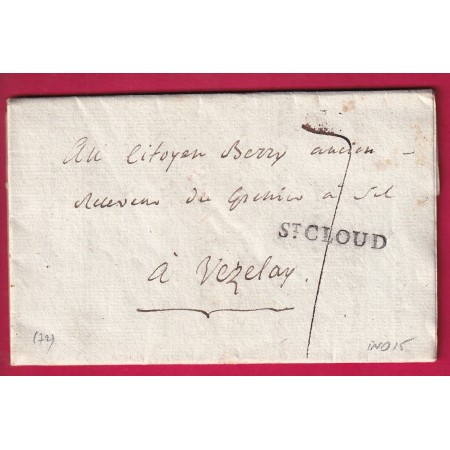 Au Citoyen Berry ancien
Receveur du Grenier à Sel
ST CLOUD
à Vezelay.
7
(72)
IND 15